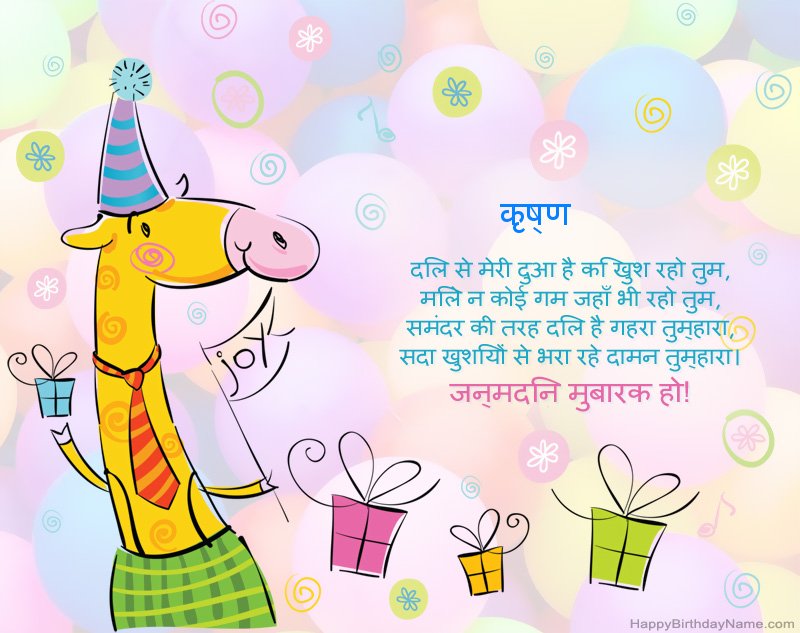 कृष्ण
दिल से मेरी दुआ है कि खुश रहो तुम,
मिले न कोई गम जहाँ भी रहो तुम,
समंदर की तरह दिल है गहरा तुम्हारा,
सदा खुशियों से भरा रहे दामन तुम्हारा।
जन्मदिन मुबारक हो!
joy
HappyBirthdayName.com